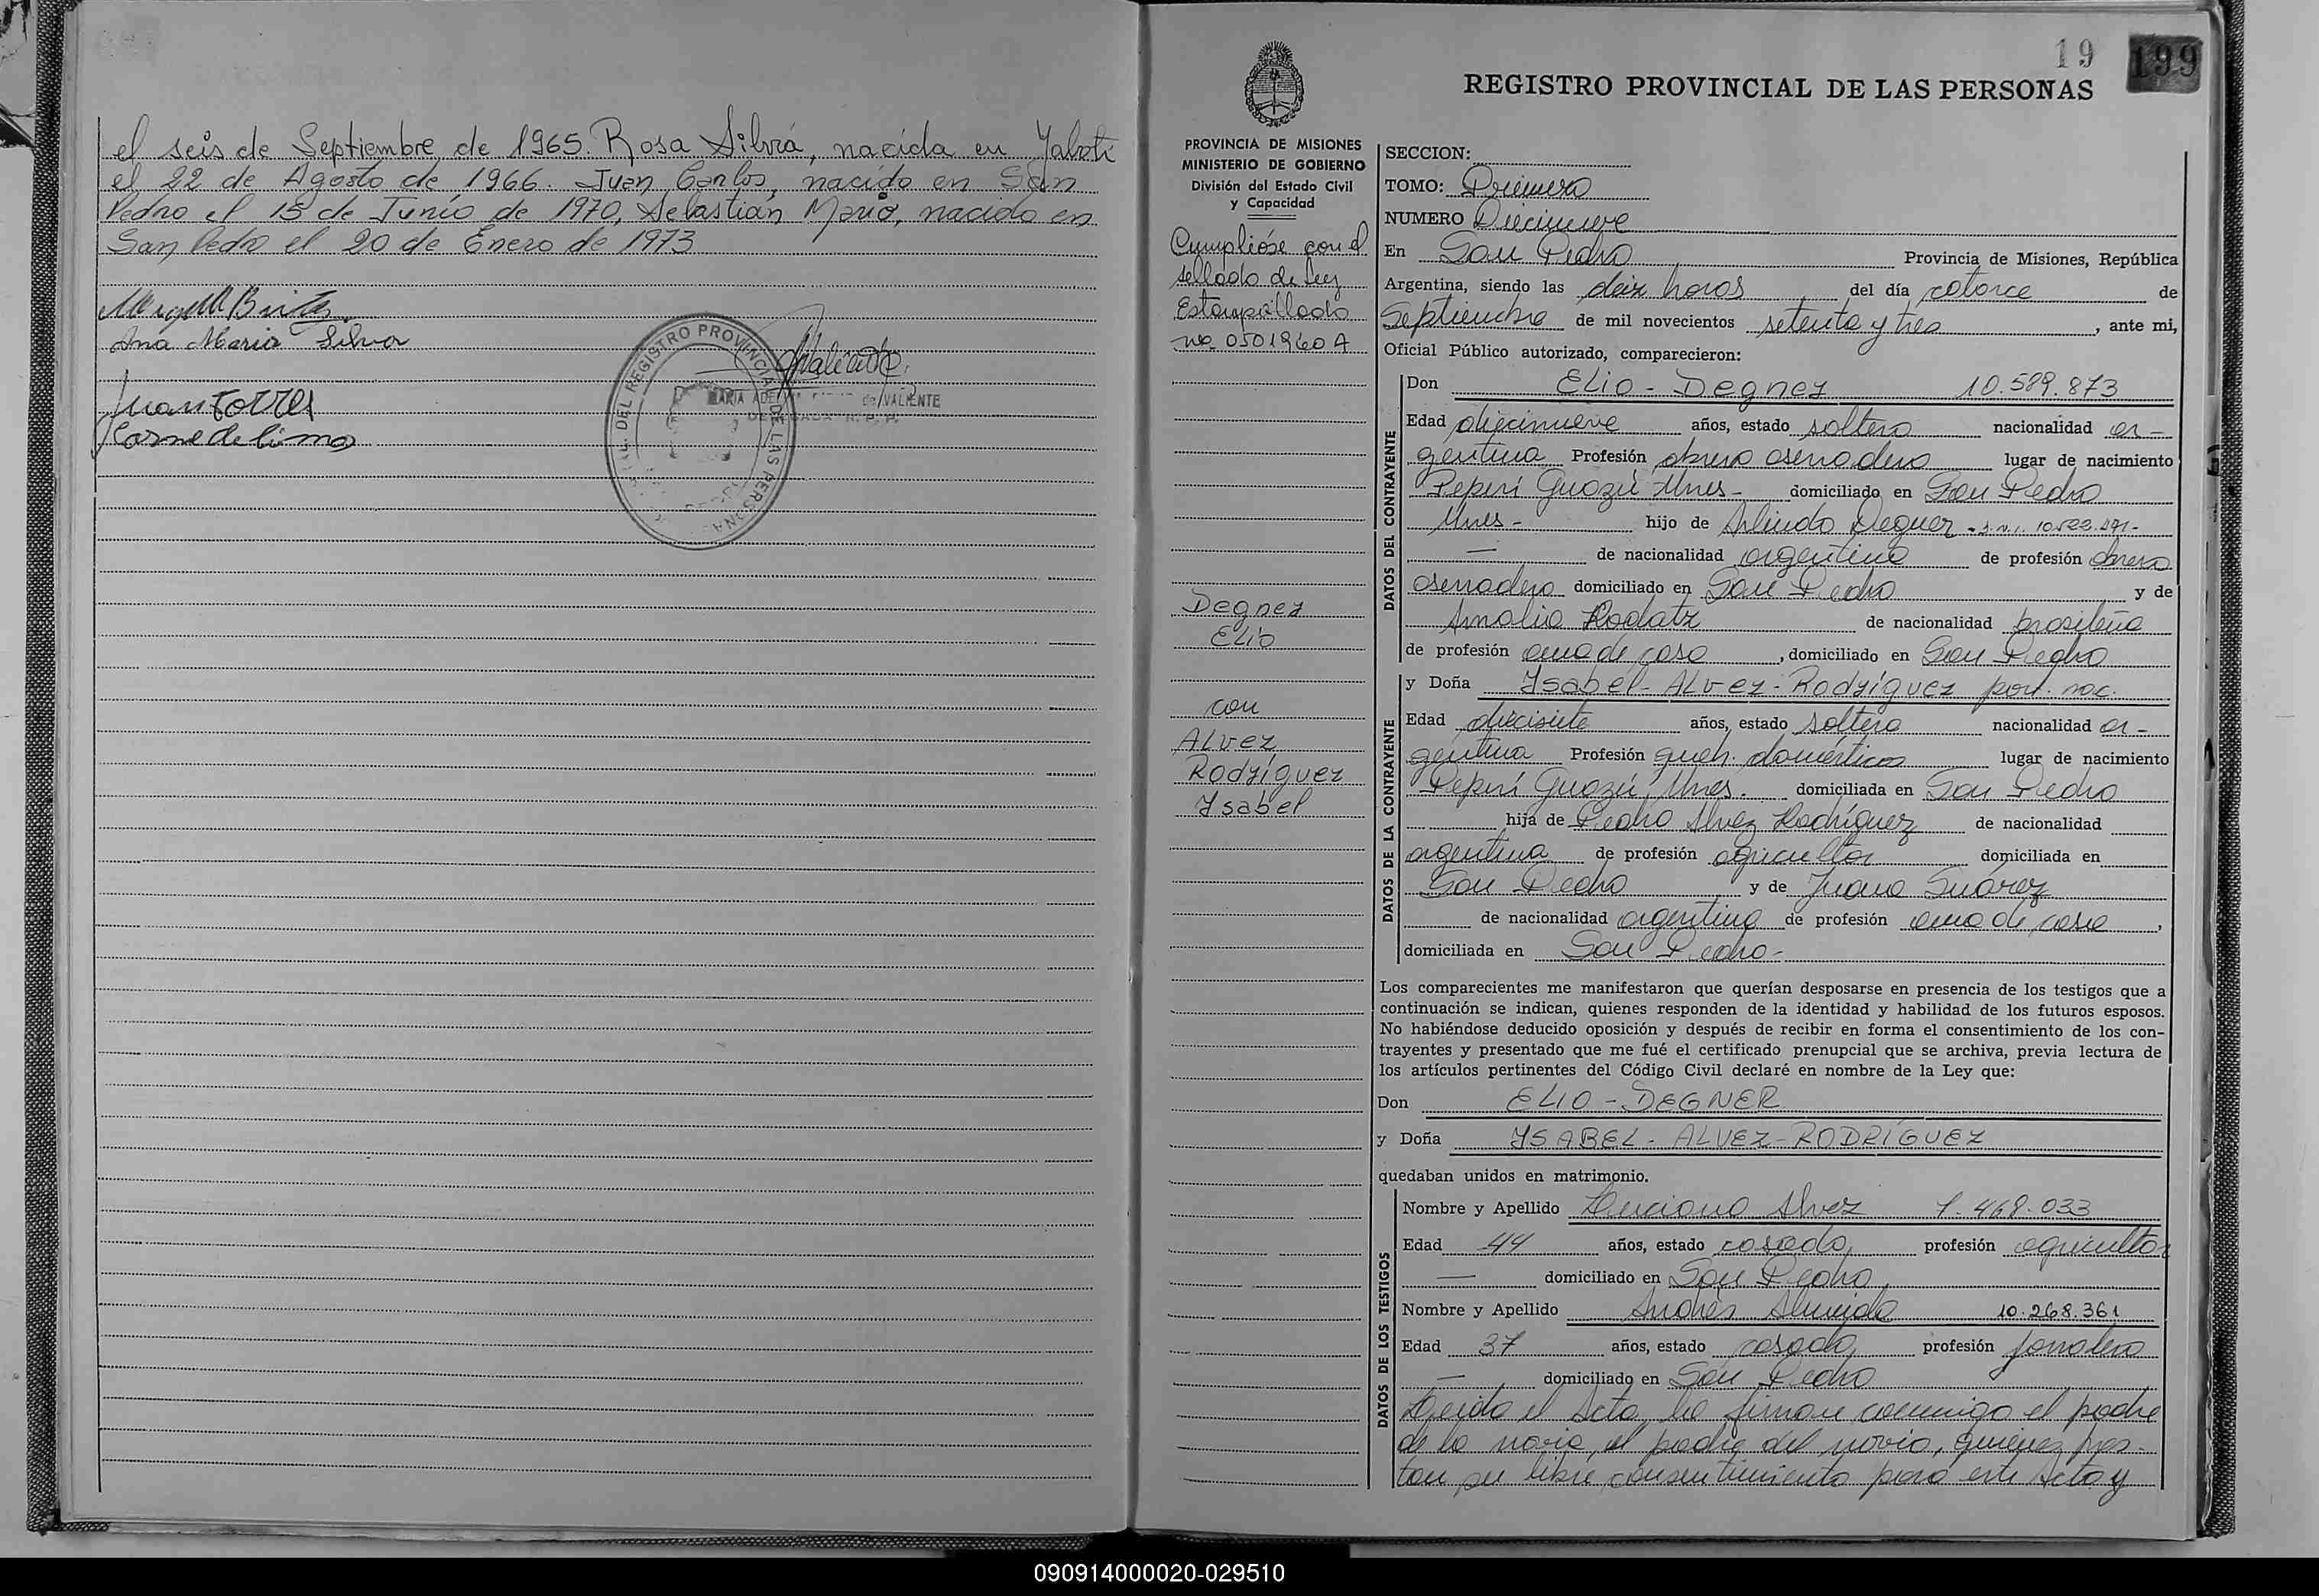 el seis de Septiembre de 1965. Rosa Silvia, nacida en Yabotí
el 22 de Agosto de 1966. Juan Carlos, nacido en San
Pedro el 15 de Junio de 1970, Sebastián Mario, nacido en
San Pedro el 20 de Enero de 1973
Ana Maria Silva
Juan Torres
DEL REGISTRO PROVINCIAL DE LAS PERSONAS
de VALIENTE
19
199
REGISTRO PROVINCIAL DE LAS PERSONAS
PROVINCIA DE MISIONES
MINISTERIO DE GOBIERNO
División del Estado Civil
y Capacidad
Cumplióse con el
sellado de Ley
Estampillado
no. 0501960 A
Degner
Elio
con
Alvez
Rodríguez
Ysabel
SECCION:
TOMO: Primero
NUMERO Diecinueve
En San Pedro Provincia de Misiones, República
Argentina, siendo las diez horas del día catorce de
Septiembre de mil novecientos setenta y tres, ante mi,
Oficial Público autorizado, comparecieron:
DATOS DEL CONTRAYENTE
Don Elio - Degner 10.589.873
Edad diecinueve años, estado soltero nacionalidad ar-
gentina Profesión obrero aserradero lugar de nacimiento
Pepirí Guazú Mnes- domiciliado en San Pedro
Mnes- hijo de Arlindo Degner - D.N.I. 10.522.291-
— de nacionalidad argentina de profesión obrero
aserradero domiciliado en San Pedro y de
Amalia Rodatz de nacionalidad brasileña
de profesión ama de casa, domiciliado en San Pedro
DATOS DE LA CONTRAYENTE
y Doña Ysabel - Alvez - Rodríguez part. nac.
Edad diecisiete años, estado soltera nacionalidad ar-
gentina Profesión queh. domésticos lugar de nacimiento
Pepirí Guazú, Mnes. domiciliada en San Pedro
hija de Pedro Alvez Rodríguez de nacionalidad
argentina de profesión agricultor domiciliada en
San Pedro y de Juana Suárez
de nacionalidad argentina de profesión ama de casa,
domiciliada en San Pedro-
Los comparecientes me manifestaron que querían desposarse en presencia de los testigos que a
continuación se indican, quienes responden de la identidad y habilidad de los futuros esposos.
No habiéndose deducido oposición y después de recibir en forma el consentimiento de los con-
trayentes y presentado que me fué el certificado prenupcial que se archiva, previa lectura de
los artículos pertinentes del Código Civil declaré en nombre de la Ley que:
Don ELIO - DEGNER
y Doña YSABEL - ALVEZ - RODRÍGUEZ
quedaban unidos en matrimonio.
DATOS DE LOS TESTIGOS
Nombre y Apellido Luciano Alvez 7.468.033
Edad 44 años, estado casado, profesión agricultor
— domiciliado en San Pedro
Nombre y Apellido Andrés Almeida 10.268.361
Edad 37 años, estado casado, profesión jornalero
— domiciliado en San Pedro
Leída el Acta, la firman conmigo el padre
de la novia, el padre del novio, quienes pres-
tan su libre consentimiento para este Acto y
090914000020-029510